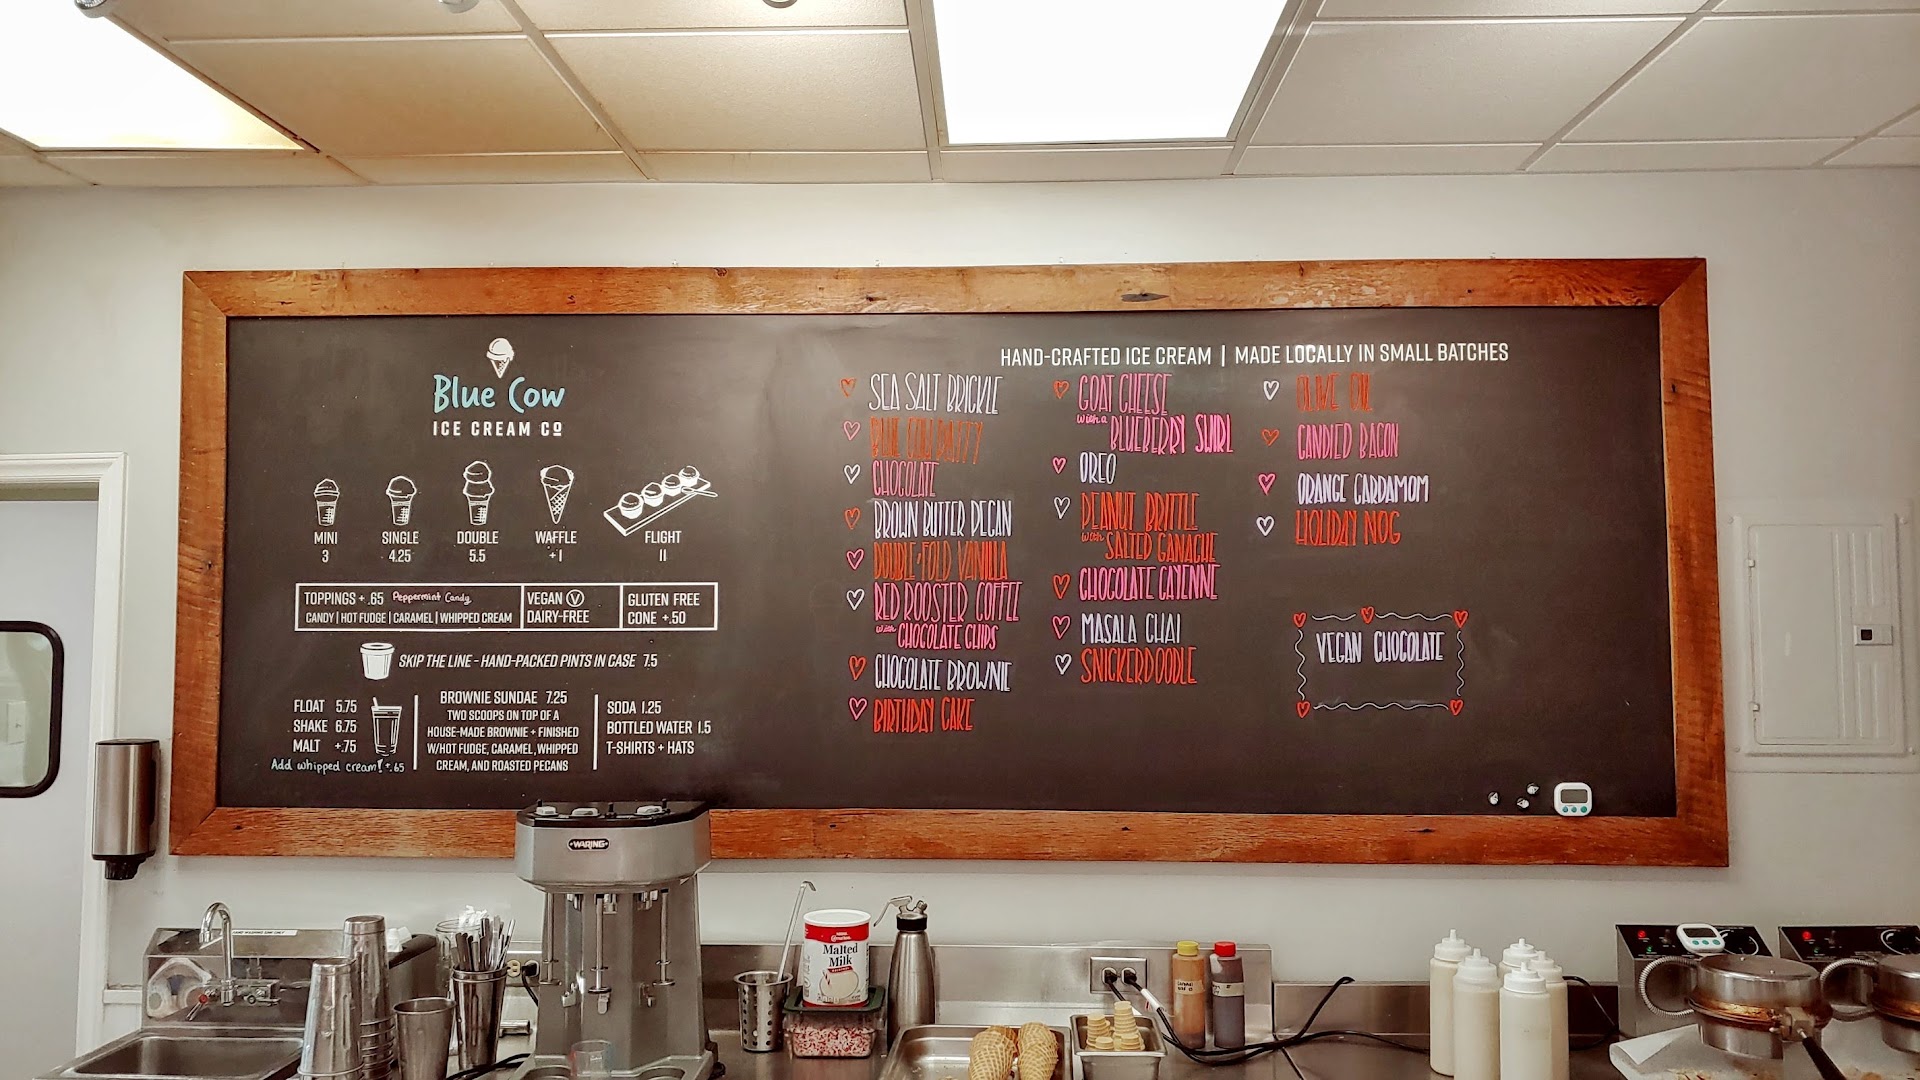 Blue Cow
ICE CREAM CO
MINI
3
SINGLE
4.25
DOUBLE
5.5
WAFFLE
+1
FLIGHT
11
TOPPINGS + .65 Peppermint Candy
CANDY | HOT FUDGE | CARAMEL | WHIPPED CREAM
VEGAN V
DAIRY-FREE
GLUTEN FREE
CONE +.50
SKIP THE LINE - HAND-PACKED PINTS IN CASE 7.5
FLOAT 5.75
SHAKE 6.75
MALT +.75
Add whipped cream! +.65
BROWNIE SUNDAE 7.25
TWO SCOOPS ON TOP OF A
HOUSE-MADE BROWNIE + FINISHED
W/HOT FUDGE, CARAMEL, WHIPPED
CREAM, AND ROASTED PECANS
SODA 1.25
BOTTLED WATER 1.5
T-SHIRTS + HATS
HAND-CRAFTED ICE CREAM | MADE LOCALLY IN SMALL BATCHES
SEA SALT BRICKLE
BLUE COW PATTY
CHOCOLATE
BROWN BUTTER PECAN
DOUBLE-FOLD VANILLA
RED ROOSTER COFFEE
with CHOCOLATE CHIPS
CHOCOLATE BROWNIE
BIRTHDAY CAKE
GOAT CHEESE
with a BLUEBERRY SWIRL
OREO
PEANUT BRITTLE
with SALTED GANACHE
CHOCOLATE CAYENNE
MASALA CHAI
SNICKERDOODLE
OLIVE OIL
CANDIED BACON
ORANGE CARDAMOM
HOLIDAY NOG
VEGAN CHOCOLATE
WARING
Carnation
Malted
Milk